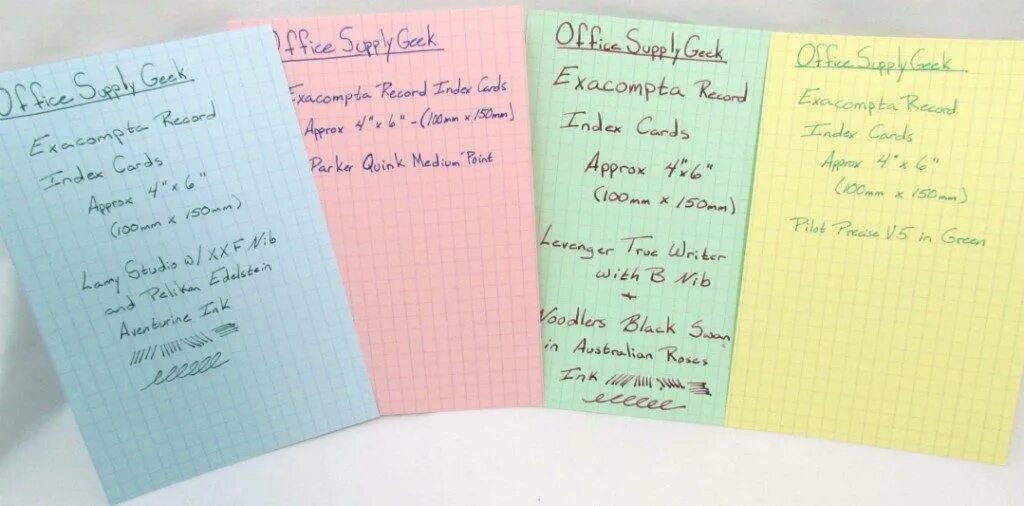 Office Supply Geek
Exacompta Record
Index Cards
Approx 4" x 6"
(100mm x 150mm)
Lamy Studio w/ XXF Nib
and Pelikan Edelstein
Aventurine Ink
Office Supply Geek
Exacompta Record Index Cards
Approx 4" x 6" - (100mm x 150mm)
Parker Quink Medium Point
Office Supply Geek
Exacompta Record
Index Cards
Approx 4"x6"
(100mm x 150mm)
Levenger True Writer
with B Nib
+
Noodlers Black Swan
in Australian Roses
Ink
Office Supply Geek
Exacompta Record
Index Cards
Approx 4" x 6"
(100mm x 150mm)
Pilot Precise V5 in Green